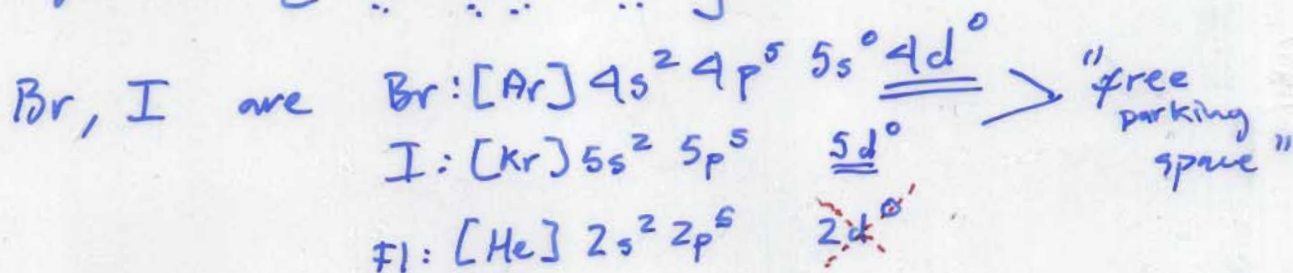 Br, I are Br: [Ar] 4s² 4p⁵ 5s⁰ 4d⁰ > "free parking space"
I: [Kr] 5s² 5p⁵ 5d⁰
Fl: [He] 2s² 2p⁵ 2d⁰